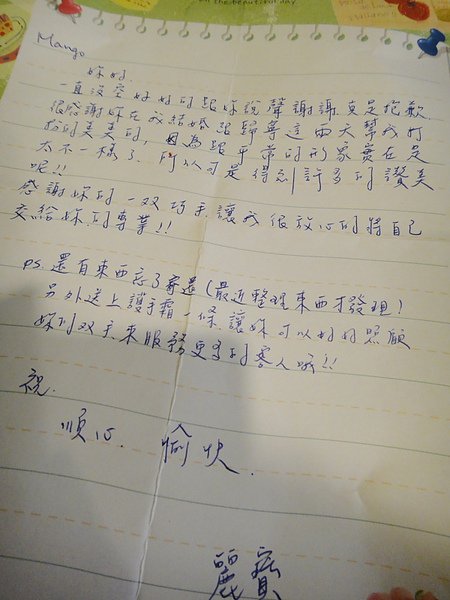 on the beautiful day
Mango
妳好.
一直沒空好好的跟妳說聲謝謝,真是抱歉.
很感謝妳在我結婚跟歸寧這兩天幫我打
扮的美美的, 因為跟平常的形象實在是
太不一樣了, 所以可是得到許多的讚美
呢!!
感謝妳的一双巧手,讓我很放心的將自己
交給妳的專業!!
ps. 還有東西忘了寄還(最近整理東西才發現)
另外送上護手霜一條,讓妳可以好好照顧
妳的双手來服務更多的客人哦!!
祝.
順心. 愉快.
麗寶